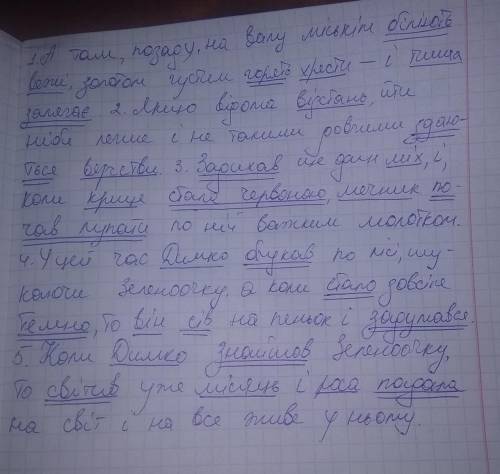 1. А там, позаду, на валу міськім біліють
вежі, золотом густим горять хрести – і тиша
залягає 2. Якщо відома відстань, йти
ніби легше і не такими довгими здаю-
ться версти. 3. Задихав іще дин міх, і,
коли криця стала червоною, мечник по-
чав гупати по ній важким молотком.
4. У цей час Димко блукав по лісі, шу-
каючи Зеленоочку, а коли стало зовсім
темно, то він сів на пеньок і задумався
5. Коли Димко знайшов Зеленоочку,
то світив уже місяць і роса падала
на світ і на все живе у ньому.